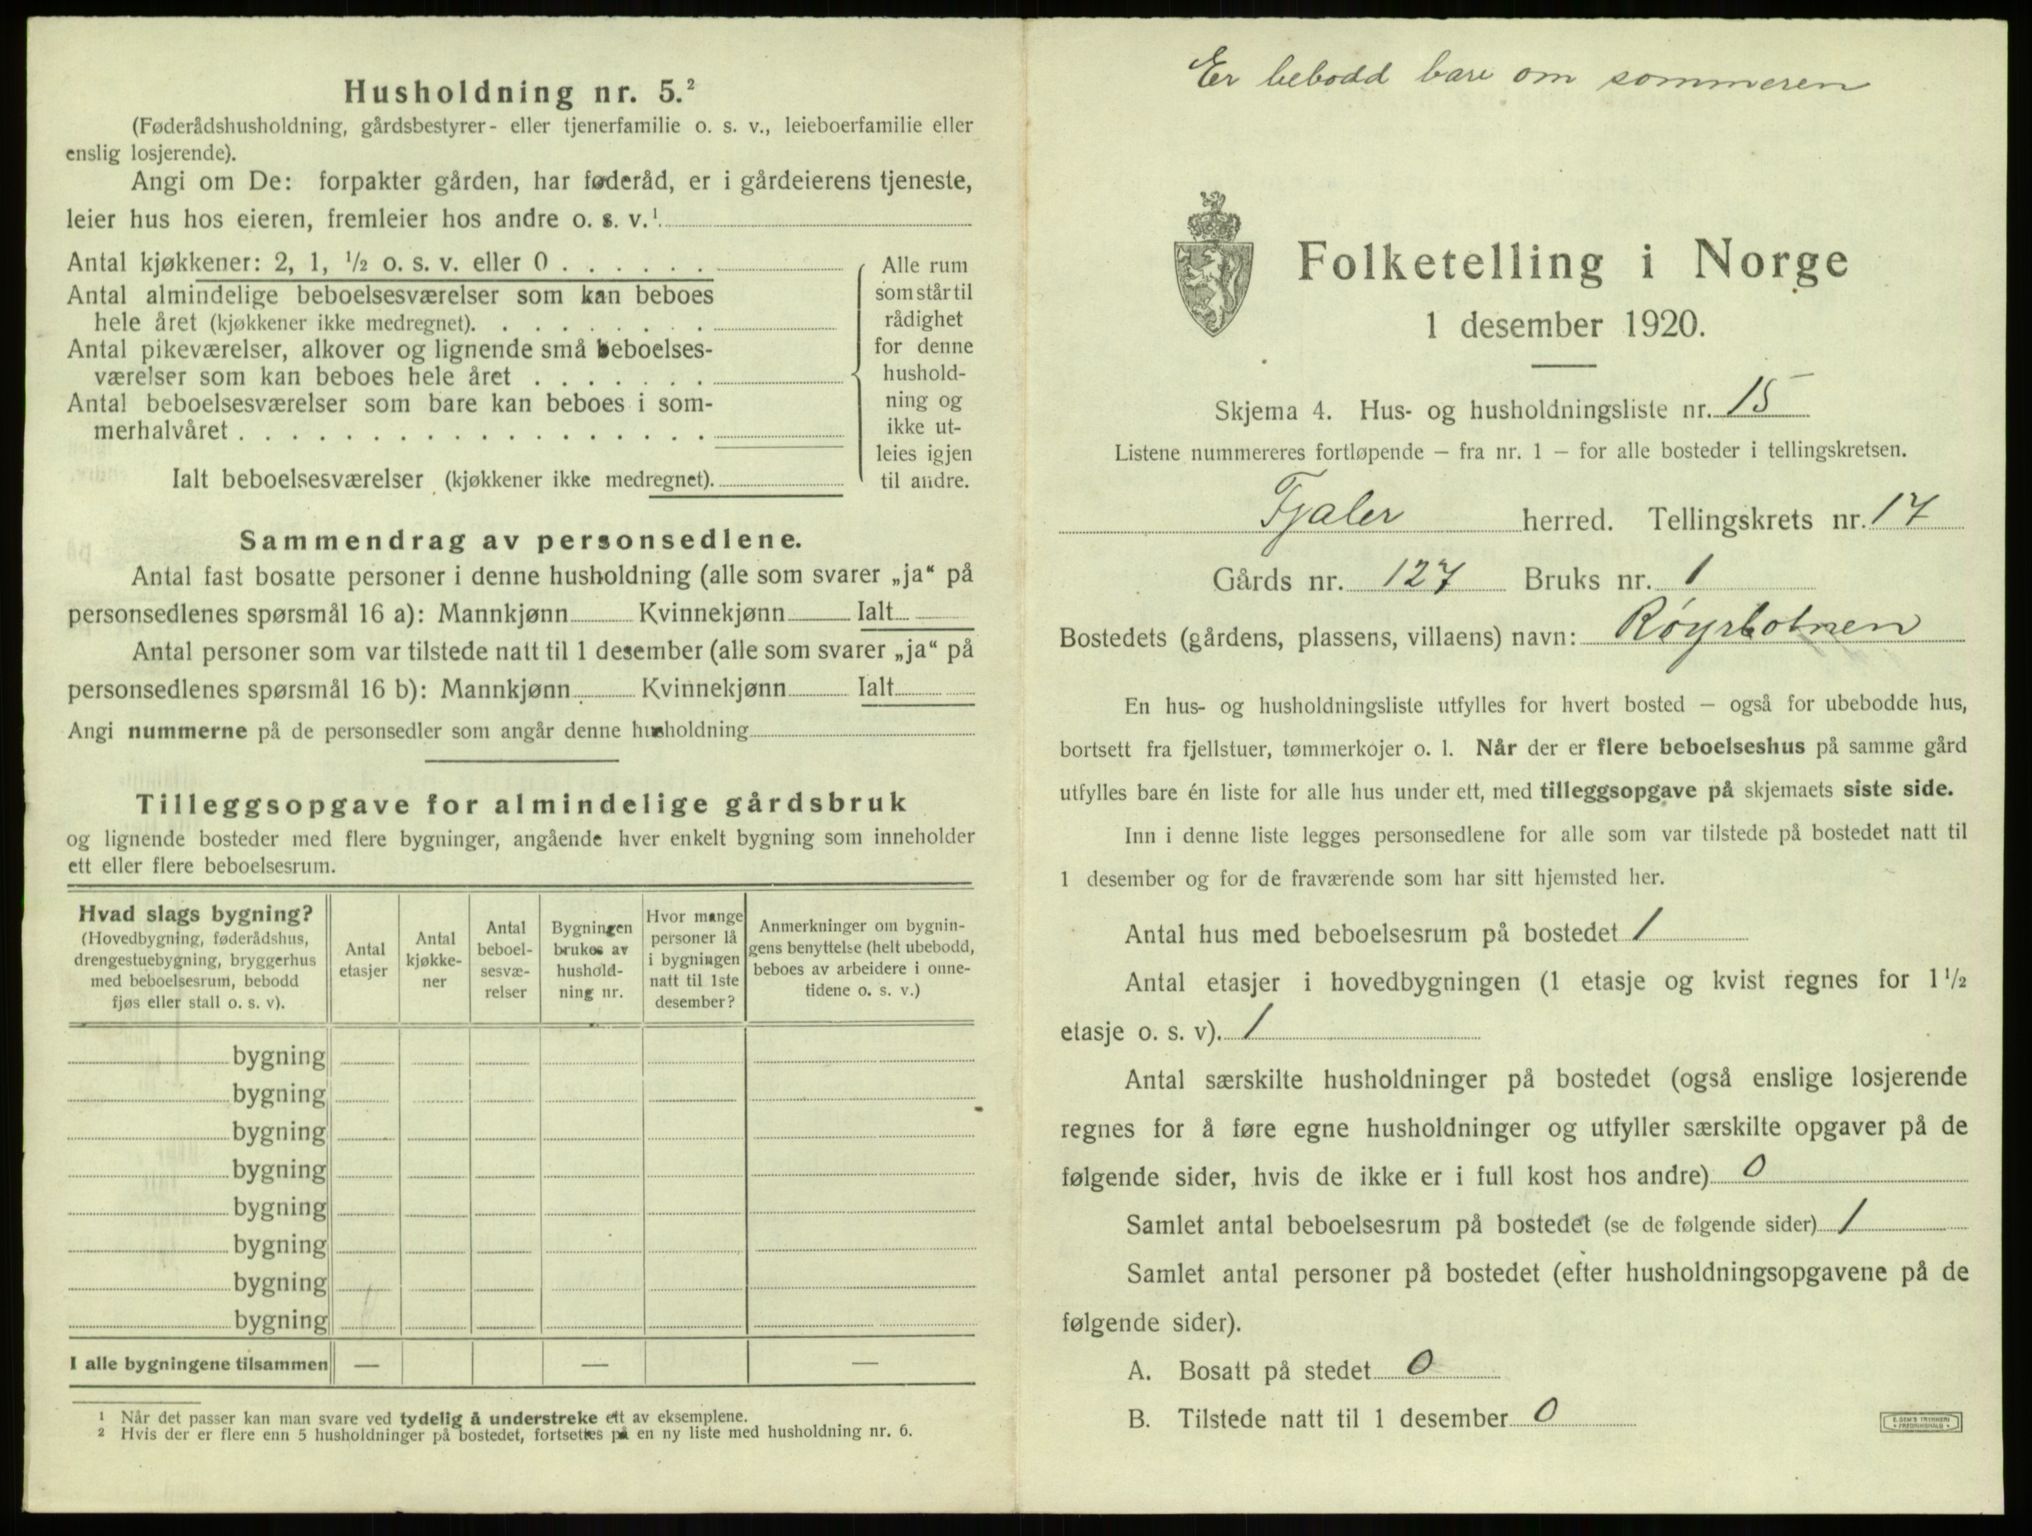 Husholdning nr. 5.²
(Føderådshusholdning, gårdsbestyrer- eller tjenerfamilie o. s. v., leieboerfamilie eller
enslig losjerende).
Angi om De: forpakter gården, har føderåd, er i gårdeierens tjeneste,
leier hus hos eieren, fremleier hos andre o. s. v.¹
Antal kjøkkener: 2, 1, ½ o. s. v. eller 0 . . . . . .
Antal almindelige beboelsesværelser som kan beboes
hele året (kjøkkener ikke medregnet). . . . . . . . .
Antal pikeværelser, alkover og lignende små beboelses-
værelser som kan beboes hele året . . . . . . .
Antal beboelsesværelser som bare kan beboes i som-
merhalvåret . . . . . . . . . . . . . . . . . .
Ialt beboelsesværelser (kjøkkener ikke medregnet).
Alle rum
som står til
rådighet
for denne
hushold-
ning og
ikke ut-
leies igjen
til andre.
Sammendrag av personsedlene.
Antal fast bosatte personer i denne husholdning (alle som svarer „ja“ på
personsedlenes spørsmål 16 a): Mannkjønn Kvinnekjønn Ialt
Antal personer som var tilstede natt til 1 desember (alle som svarer „ja“ på
personsedlenes spørsmål 16 b): Mannkjønn Kvinnekjønn Ialt
Angi nummerne på de personsedler som angår denne husholdning
Tilleggsopgave for almindelige gårdsbruk
og lignende bosteder med flere bygninger, angående hver enkelt bygning som inneholder
ett eller flere beboelsesrum.
Hvad slags bygning?
(Hovedbygning, føderådshus,
drengestuebygning, bryggerhus
med beboelsesrum, bebodd
fjøs eller stall o. s. v).
Antal
etasjer
Antal
kjøkke-
ner
Antal
beboel-
sesvæ-
relser
Bygningen
brukes av
hushold-
ning nr.
Hvor mange
personer lå
i bygningen
natt til 1ste
desember?
Anmerkninger om bygnin-
gens benyttelse (helt ubebodd,
beboes av arbeidere i onne-
tidene o. s. v.)
bygning
bygning
bygning
bygning
bygning
bygning
bygning
bygning
I alle bygningene tilsammen — — —
¹ Når det passer kan man svare ved tydelig å understreke ett av eksemplene.
² Hvis der er flere enn 5 husholdninger på bostedet, fortsettes på en ny liste med husholdning nr. 6.
Er bebodd bare om sommeren
Folketelling i Norge
1 desember 1920.
Skjema 4. Hus- og husholdningsliste nr. 15
Listene nummereres fortløpende — fra nr. 1 — for alle bosteder i tellingskretsen.
Fjaler herred. Tellingskrets nr. 17
Gårds nr. 127 Bruks nr. 1
Bostedets (gårdens, plassens, villaens) navn: Røyrbotnen
En hus- og husholdningsliste utfylles for hvert bosted — også for ubebodde hus,
bortsett fra fjellstuer, tømmerkojer o. l. Når der er flere beboelseshus på samme gård
utfylles bare én liste for alle hus under ett, med tilleggsopgave på skjemaets siste side.
Inn i denne liste legges personsedlene for alle som var tilstede på bostedet natt til
1 desember og for de fraværende som har sitt hjemsted her.
Antal hus med beboelsesrum på bostedet 1
Antal etasjer i hovedbygningen (1 etasje og kvist regnes for 1 ½
etasje o. s. v). 1
Antal særskilte husholdninger på bostedet (også enslige losjerende
regnes for å føre egne husholdninger og utfyller særskilte opgaver på de
følgende sider, hvis de ikke er i full kost hos andre) 0
Samlet antal beboelsesrum på bostedet (se de følgende sider) 1
Samlet antal personer på bostedet (efter husholdningsopgavene på de
følgende sider).
A. Bosatt på stedet 0
B. Tilstede natt til 1 desember 0